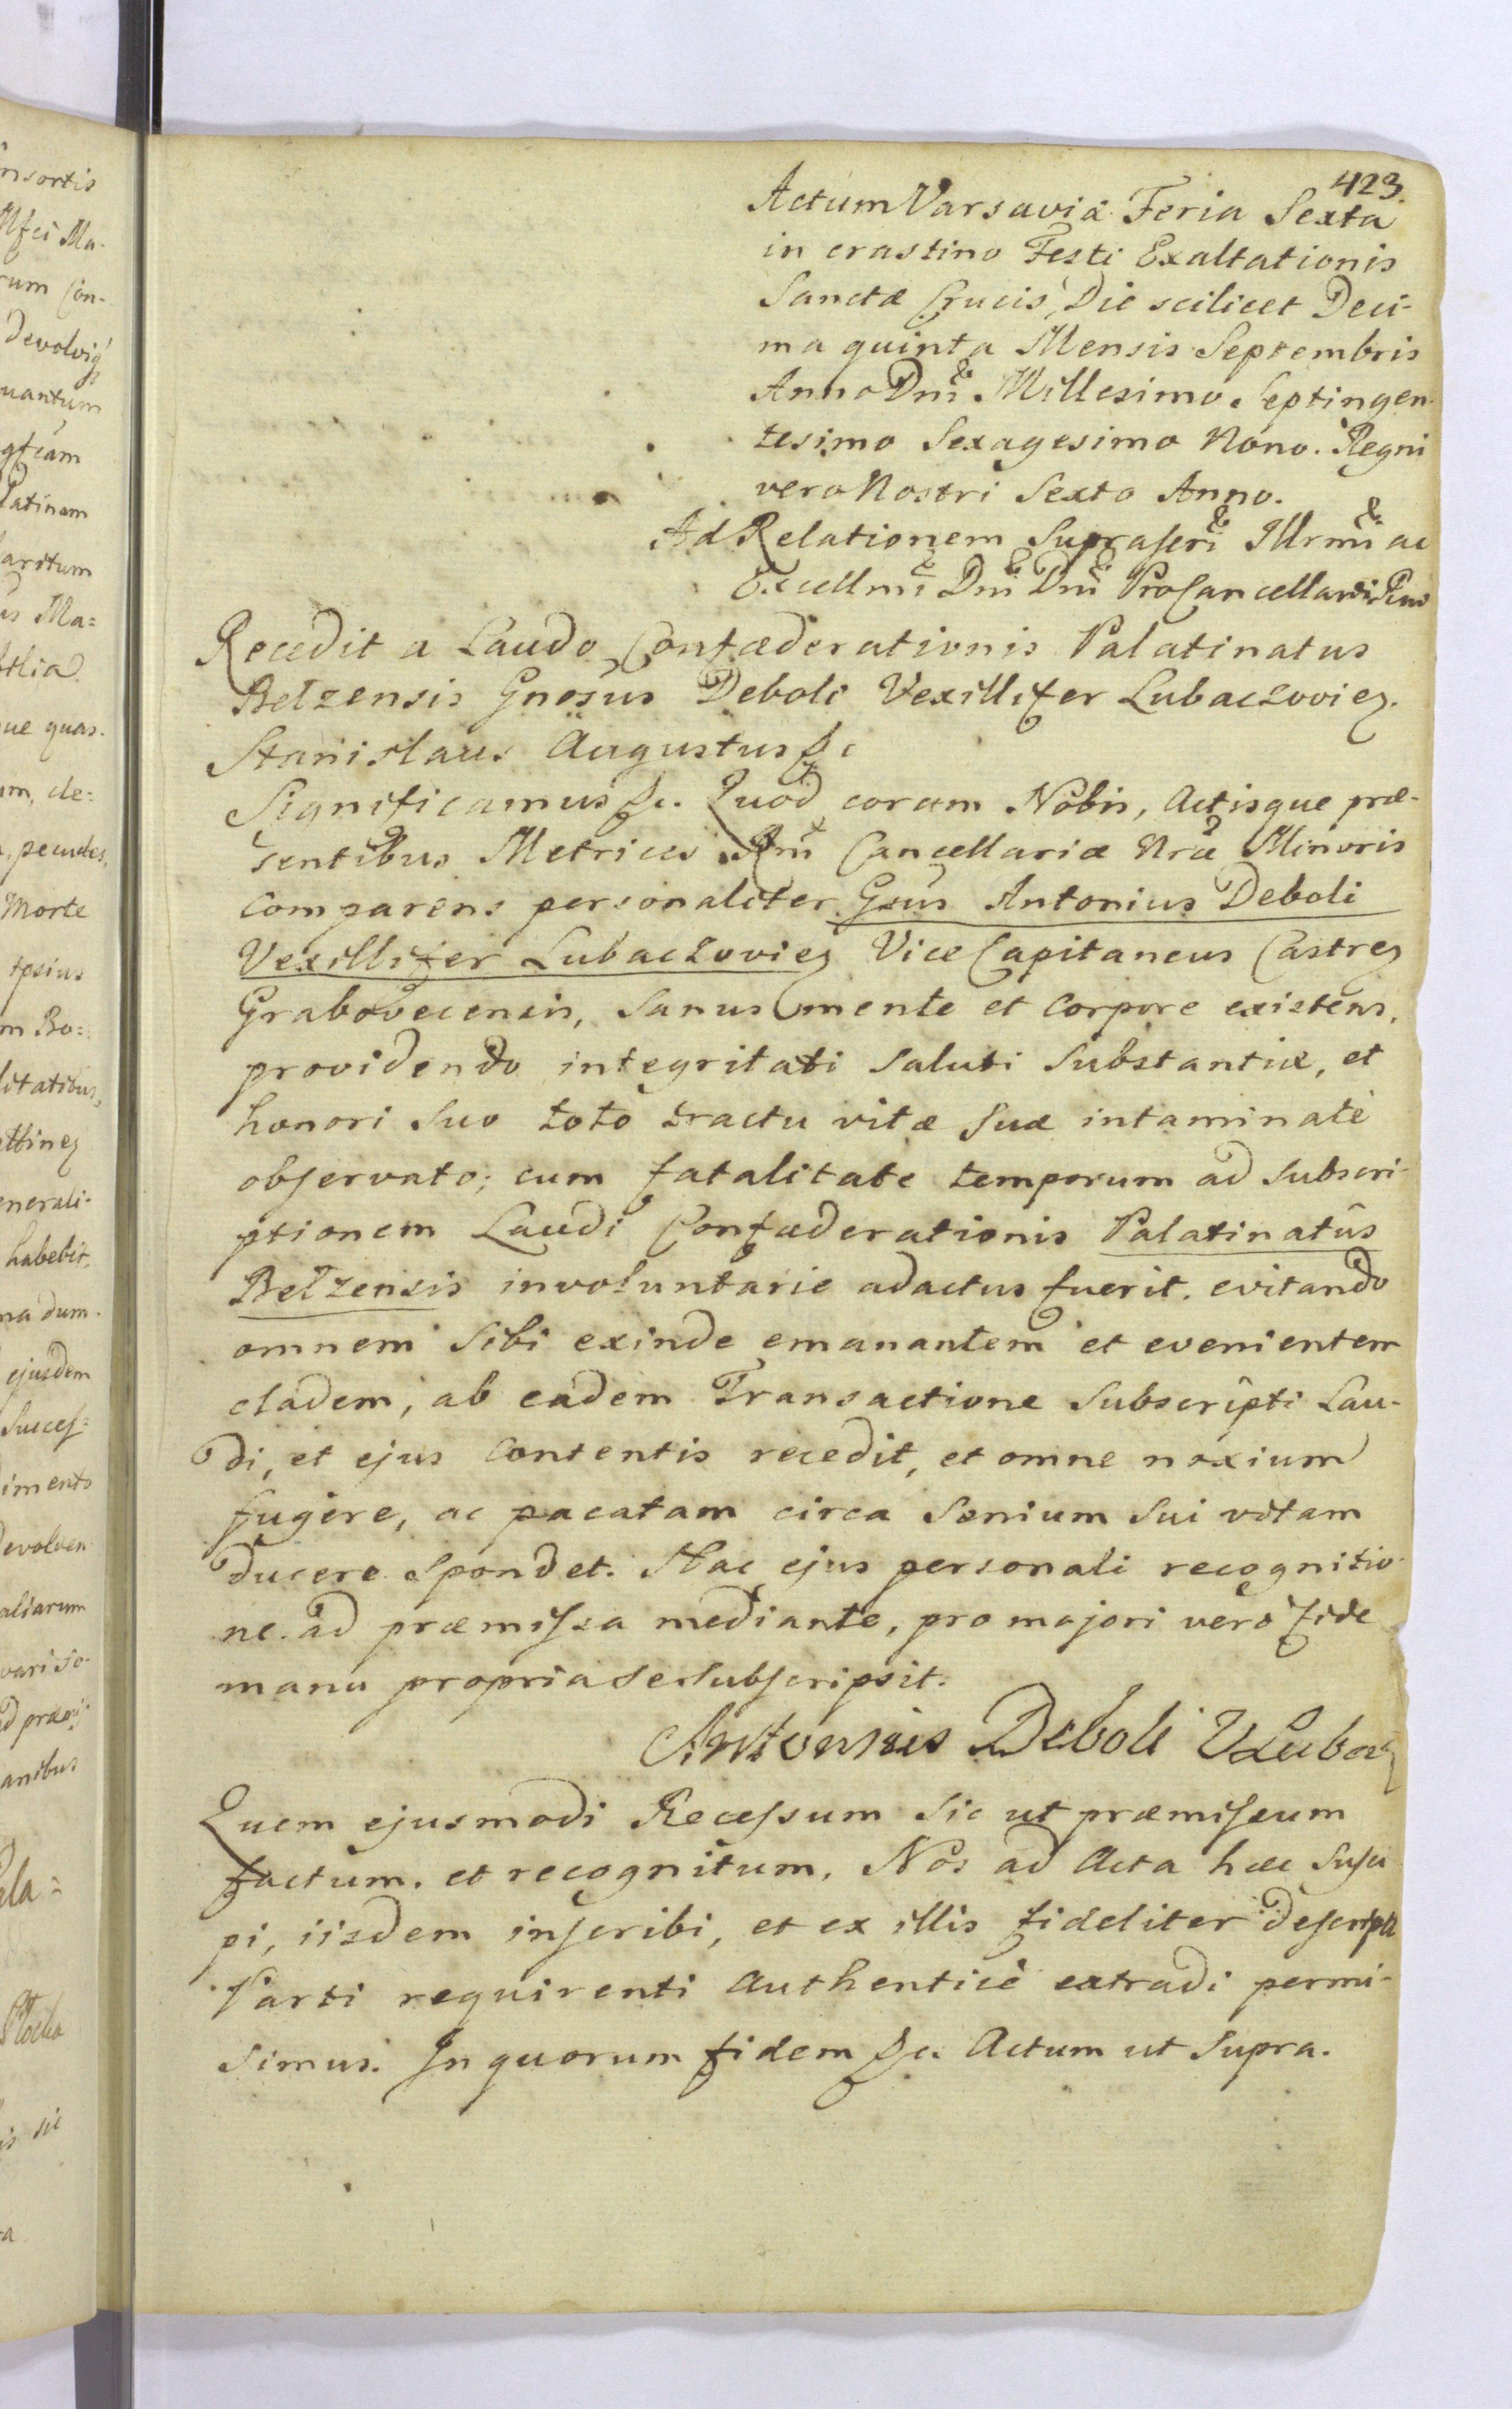 423.
Actum Varsaviæ Feria Sexta
in crastino Festi Exaltationis
Sanctæ Crucis, Die scilicet Deci-
ma quinta Mensis Septembris
Anno Dni Millesimo Septingen-
tesimo Sexagesimo Nono. Regni
vero Nostri Sexto Anno.
Ad Relationem Suprascri Illrmi ac
Excellmi Dni Dni ProCancellarii
Recedit a Laudo Confæderationis Palatinatus
Belzensis Gnosus Deboli Vexillifer Lubaczovien.
Stanislaus Augustus &c
Significamus &c. Quod coram Nobis, Actisque præ-
sentibus Metrices Rni Cancellariæ Nræ Minoris
comparens personaliter Gsus Antonius Deboli
Vexillifer Lubaczovien ViceCapitaneus Castren
Grabovecensis, sanus mente et corpore existens,
providendo integritati saluti substantiæ, et
honori suo toto tractu vitæ suæ intaminatè
observato; cum fatalitate temporum ad subscri-
ptionem Laudi Confæderationis Palatinatûs
Belzensis involuntarie adactus fuerit, evitando
omnem sibi exinde emanantem et evenientem
cladem, ab eadem Transactione subscripti Lau-
di, et ejus contentis recedit, et omne noxium
fugere, ac pacatam circa senium sui vitam
ducere spondet. Hac ejus personali recognitio-
ne ad præmissa mediante, pro majori verò fide
manu propria se subscripsit.
Antonius Deboli VLubacz
Quem ejusmodi Recessum sic ut præmissum
factum, et recognitum, Nos ad Acta hæc susci
pi, iisdem inscribi, et ex illis fideliter descriptu
Parti requirenti authenticè extradi permi-
simus. In quorum fidem &c. Actum ut supra.